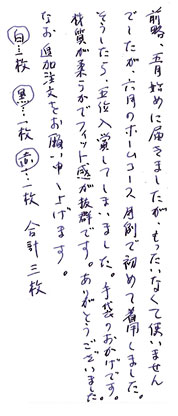 前略、五月始めに届きましたが、もったいなくて使いません
でしたが、六月のホームコース月例で初めて着用しました。
そうしたら、五位入賞してしまいました。手袋のおかげです。
材質が柔らかでフィット感が抜群です。ありがとうございました。
なお、追加注文をお願い申し上げます。
白…一枚 黒…一枚 赤…一枚 合計三枚